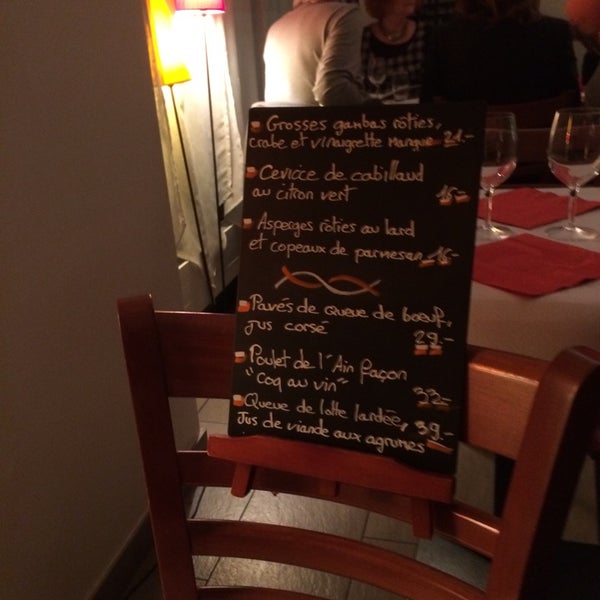 Grosses gambas rôties,
crabe et vinaigrette mangue 21.-
Cevicce de cabillaud
au citron vert 15.-
Asperges rôties au lard
et copeaux de parmesan 16.-
Pavés de queue de boeuf,
jus corsé 29.-
Poulet de l'Ain façon
"coq au vin" 32.-
Queue de lotte lardée, 39.-
Jus de viande aux agrumes